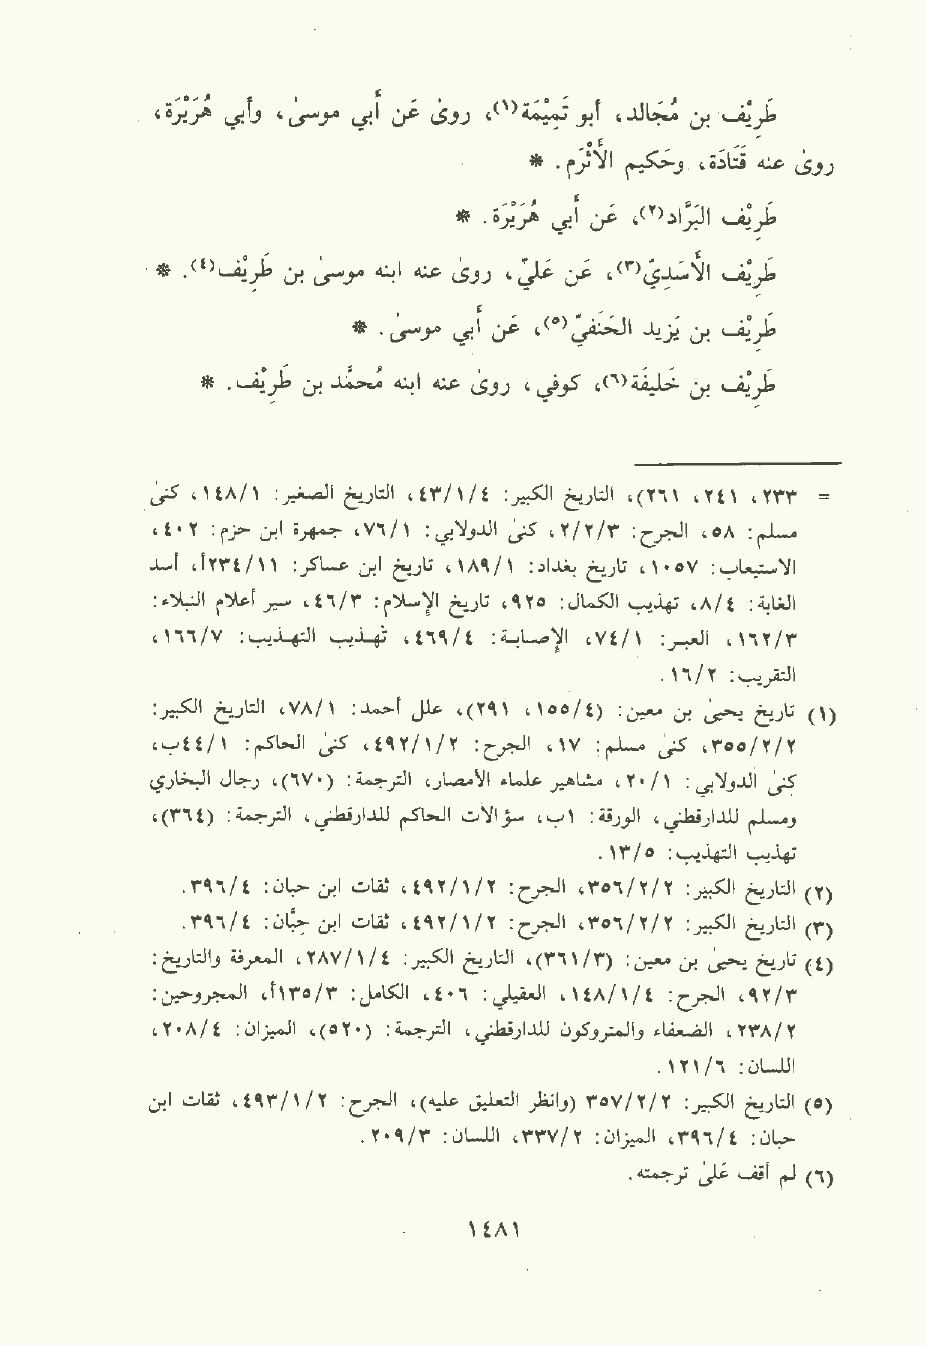 طَرِيْف بن مُجَالد، أبو تَمِيْمَة(١)، روىٰ عَن أبي موسىٰ، وأبي هُرَيْرَة،
روىٰ عنه قَتَادَة، وحَكيم الأَثْرَم. *
طَرِيْف البَرَّاد(٢)، عَن أبي هُرَيْرَة. *
طَرِيْف الأَسَدِيّ(٣)، عَن عَليّ، روىٰ عنه ابنه موسىٰ بن طَرِيْف(٤). *
طَرِيْف بن يَزيد الحَنَفيّ(٥)، عَن أبي موسىٰ. *
طَرِيْف بن خَليفَة(٦)، كوفي، روىٰ عنه ابنه مُحمَّد بن طَرِيْف. *
= ٢٣٣، ٢٤١، ٢٦١)، التاريخ الكبير: ٤/١/٤٣، التاريخ الصغير: ١/١٤٨، كنىٰ
مسلم: ٥٨، الجرح: ٣/٢/٢، كنىٰ الدولابي: ١/٧٦، جمهرة ابن حزم: ٤٠٢،
الاستيعاب: ١٠٥٧، تاريخ بغداد: ١/١٨٩، تاريخ ابن عساكر: ١١/٢٣٤أ، أسد
الغابة: ٤/٨، تهذيب الكمال: ٩٢٥، تاريخ الإسلام: ٣/٤٦، سير أعلام النبلاء:
٣/١٦٢، العبر: ١/٧٤، الإصابة: ٤/٤٦٩، تهذيب التهذيب: ٧/١٦٦،
التقريب: ٢/١٦.
(١) تاريخ يحيىٰ بن معين: (٤/١٥٥، ٢٩١)، علل أحمد: ١/٧٨، التاريخ الكبير:
٢/٢/٣٥٥، كنىٰ مسلم: ١٧، الجرح: ٢/١/٤٩٢، كنىٰ الحاكم: ١/٤٤ب،
كنىٰ الدولابي: ١/٢٠، مشاهير علماء الأمصار، الترجمة: (٦٧٠)، رجال البخاري
ومسلم للدارقطني، الورقة: ١ب، سؤالات الحاكم للدارقطني، الترجمة: (٣٦٤)،
تهذيب التهذيب: ٥/١٣.
(٢) التاريخ الكبير: ٢/٢/٣٥٦، الجرح: ٢/١/٤٩٢، ثقات ابن حبان: ٤/٣٩٦.
(٣) التاريخ الكبير: ٢/٢/٣٥٦، الجرح: ٢/١/٤٩٢، ثقات ابن حِبَّان: ٤/٣٩٦.
(٤) تاريخ يحيىٰ بن معين: (٣/٣٦١)، التاريخ الكبير: ٤/١/٢٨٧، المعرفة والتاريخ:
٣/٩٢، الجرح: ٤/١/١٤٨، العقيلي: ٤٠٦، الكامل: ٣/١٣٥أ، المجروحين:
٢/٢٣٨، الضعفاء والمتروكون للدارقطني، الترجمة: (٥٢٠)، الميزان: ٤/٢٠٨،
اللسان: ٦/١٢١.
(٥) التاريخ الكبير: ٢/٢/٣٥٧ (وانظر التعليق عليه)، الجرح: ٢/١/٤٩٣، ثقات ابن
حبان: ٤/٣٩٦، الميزان: ٢/٣٣٧، اللسان: ٣/٢٠٩.
(٦) لم أقف عَلىٰ ترجمته.
١٤٨١